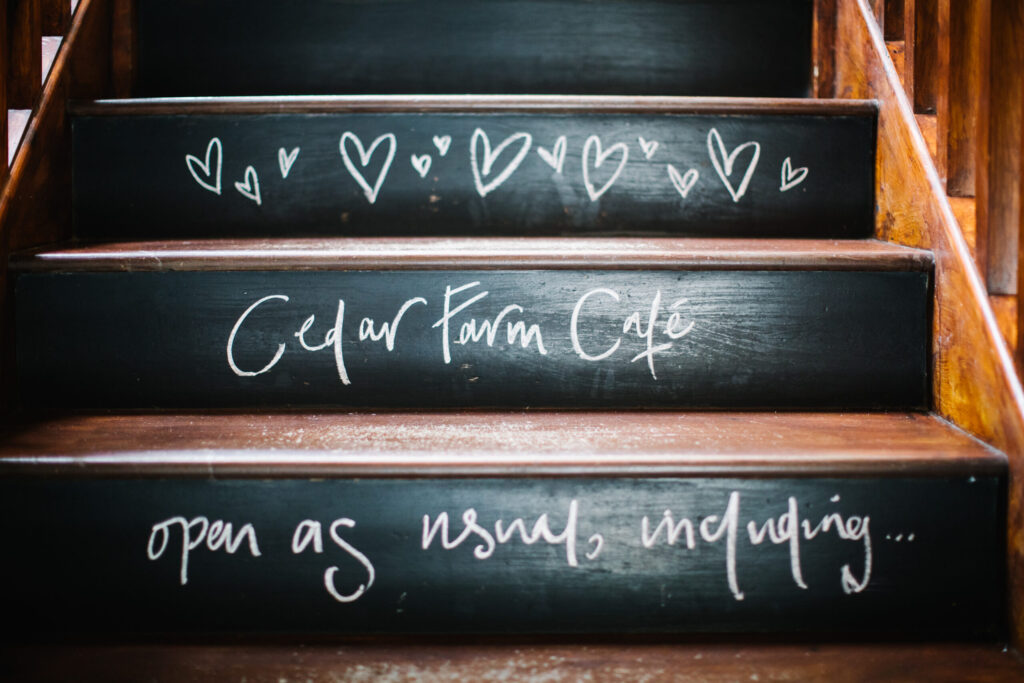 Cedar Farm Café
open as usual, including...